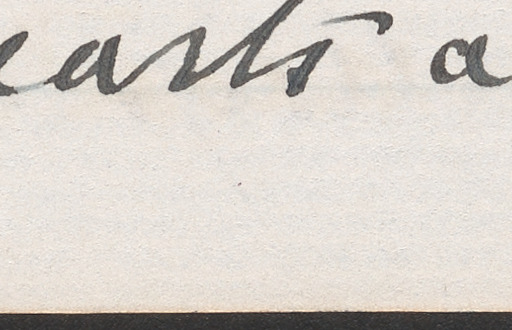 earts a